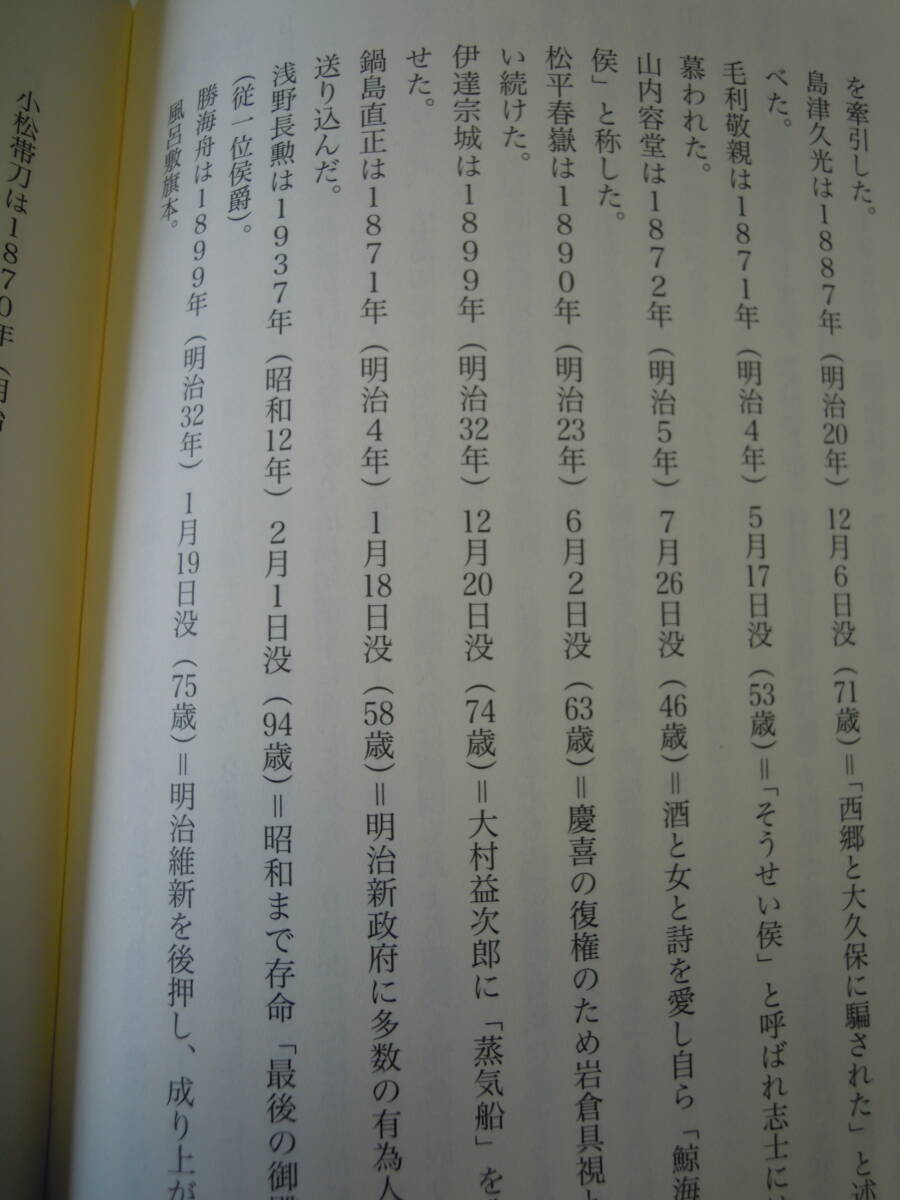 を牽引した。
島津久光は1887年（明治20年）12月6日没（71歳）＝「西郷と大久保に騙された」と述
べた。
毛利敬親は1871年（明治4年）5月17日没（53歳）＝「そうせい侯」と呼ばれ志士に
慕われた。
山内容堂は1872年（明治5年）7月26日没（46歳）＝酒と女と詩を愛し自ら「鯨海
侯」と称した。
松平春嶽は1890年（明治23年）6月2日没（63歳）＝慶喜の復権のため岩倉具視と
い続けた。
伊達宗城は1899年（明治32年）12月20日没（74歳）＝大村益次郎に「蒸気船」を
せた。
鍋島直正は1871年（明治4年）1月18日没（58歳）＝明治新政府に多数の有為人
送り込んだ。
浅野長勲は1937年（昭和12年）2月1日没（94歳）＝昭和まで存命「最後の御
（従一位侯爵）。
勝海舟は1899年（明治32年）1月19日没（75歳）＝明治維新を後押し、成り上が
風呂敷旗本。
小松帯刀は1870年（明治